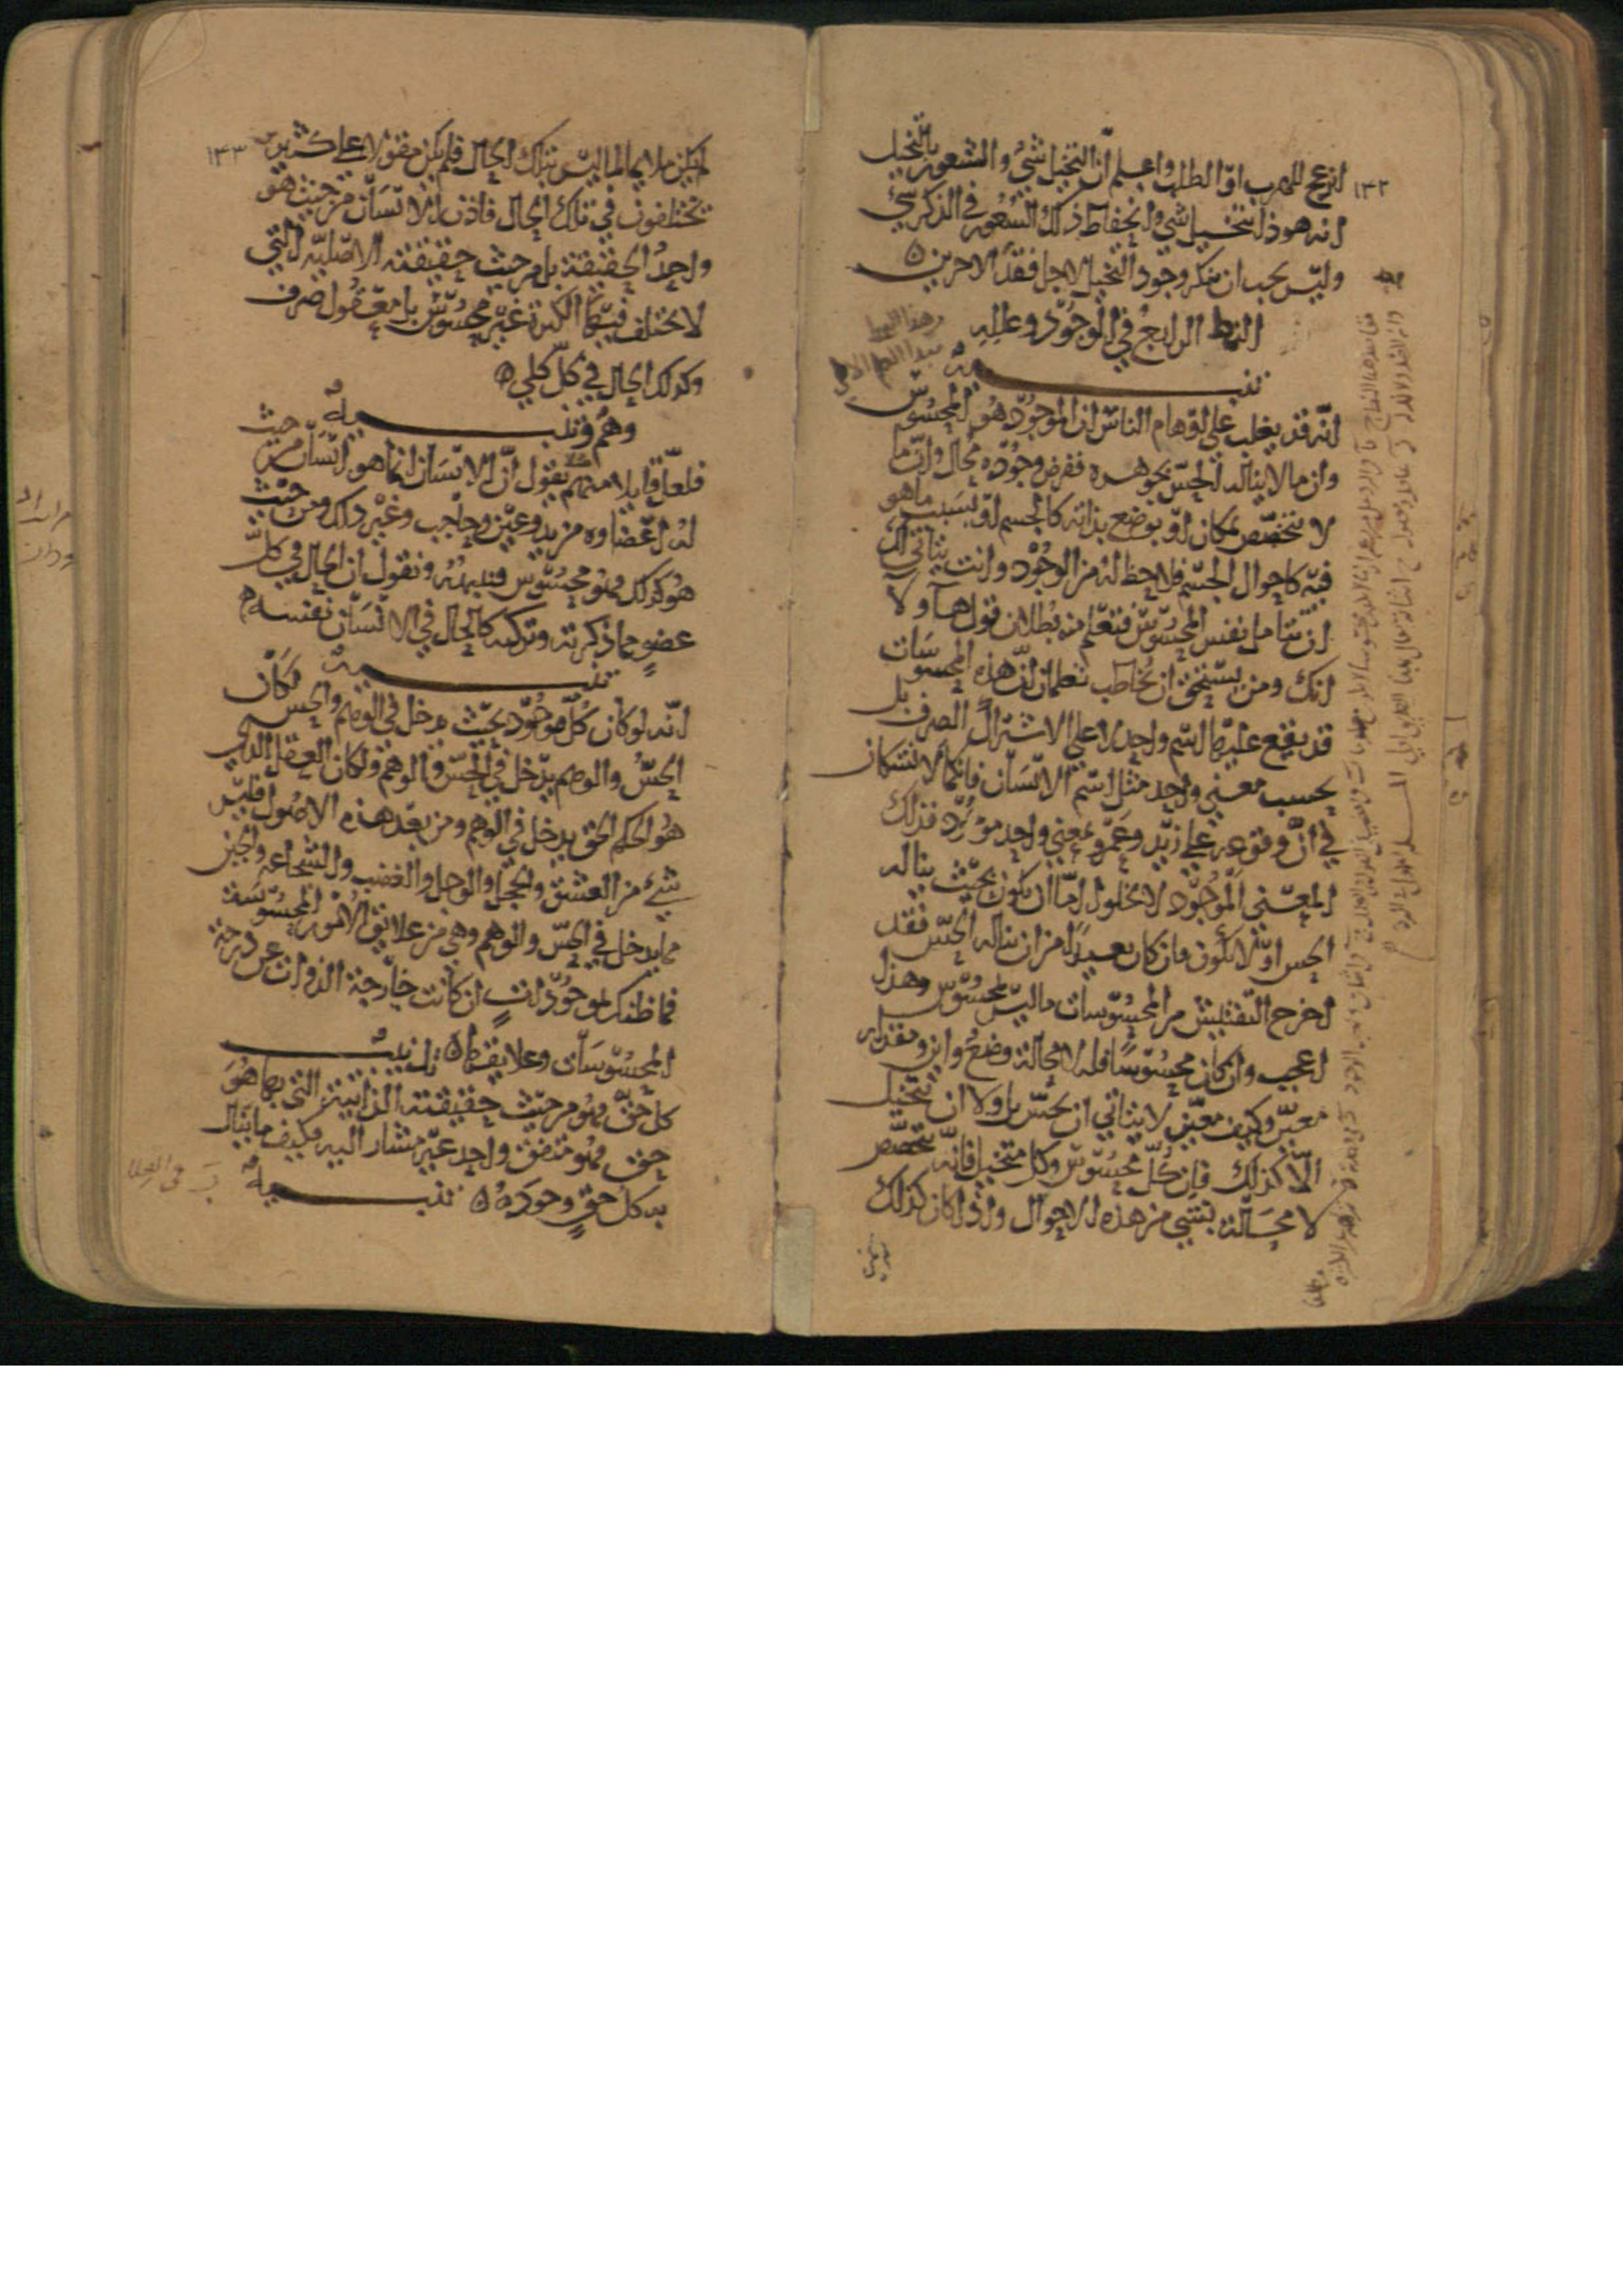 ١٤٢
انزعج للهرب او الطلب واعلم ان التخيل شئ والشعور بالتخيل
انه هوذا يتخيل شي وانحفاظ ذلك الشعور في الذكر شئ
وليس يجب ان ينكر وجود التخيل لاجل فقد الاخرين
النمط الرابع في الموجود وعلله
تنبيه
انه قد يغلب على اوهام الناس ان الموجود هو المحسوس
وان ما لا يناله الحس بجوهره ففرض وجوده محال وان ما
لا يتخصص بمكان او بوضع بذاته كالجسم او بسبب ما هو
فيه كاحوال الجسم فلا حظ له من الوجود وانت يتاتى لك
ان تتامل نفس المحسوس فتعلم منه بطلان قول هاولا
انك ومن يستحق ان يخاطب تعلمان ان هذه المحسوسات
قد يقع عليها اسم واحد لا على الاشتراك الصرف بل
بحسب معنى واحد مثل اسم الانسان فانكما لا تشكان
في ان وقوعه على زيد وعمرو بمعنى واحد موجود فذلك
المعنى الموجود لا يخلوا اما ان يكون بحيث يناله
الحس او لا يكون فان كان بعيدا من ان يناله الحس فقد
اخرج التفتيش من المحسوسات ما ليس بمحسوس وهذا
اعجب وان كان محسوسا فله لا محالة وضع واين ومقدار
معين وكيف معين لا يتاتى ان يحس بل ولا ان يتخيل
الا كذلك فان كل محسوس وكل متخيل فانه يتخصص
لا محالة بشي من هذه الاحوال واذا كان كذلك
لم يكن
١٤٣
لم يكن ملايما لما ليس بتلك الحال فلم يكن مقولا على كثيرين
يختلفون في تلك الحال فاذن الانسان من حيث هو
واحد الحقيقة بل من حيث حقيقته الاصلية التي
لا تختلف فيها الكثرة غير محسوس بل معقول صرف
وكذلك الحال في كل كلي
وهم وتنبيه
فلعل قايلا منهم يقول ان الانسان انما هو انسان من حيث
له اعضاء من يد وعين وحاجب وغير ذلك ومن حيث
هو كذلك فهو محسوس فننبهه ونقول ان الحال في كل
عضو مما ذكرته وتركته كالحال في الانسان نفسه
تنبيه
انه لو كان كل موجود بحيث يدخل في الوهم والحس لكان
الحس والوهم يدخل في الحس والوهم ولكان العقل الذي
هو الحكم الحق يدخل في الوهم ومن بعد هذه الاصول فليس
شئ من العشق والخجل والوجل والغضب والشجاعة والجبن
مما يدخل في الحس والوهم وهي من علايق الامور المحسوسة
فما ظنك بموجودات ان كانت خارجة الذوات عن درجة
المحسوسات وعلايقها تذنيب
كل حق فهو من حيث حقيقته الذاتية التي بها هو
حق فهو متفق واحد غير مشار اليه فكيف ما ينال
به كل حق وجوده تنبيه